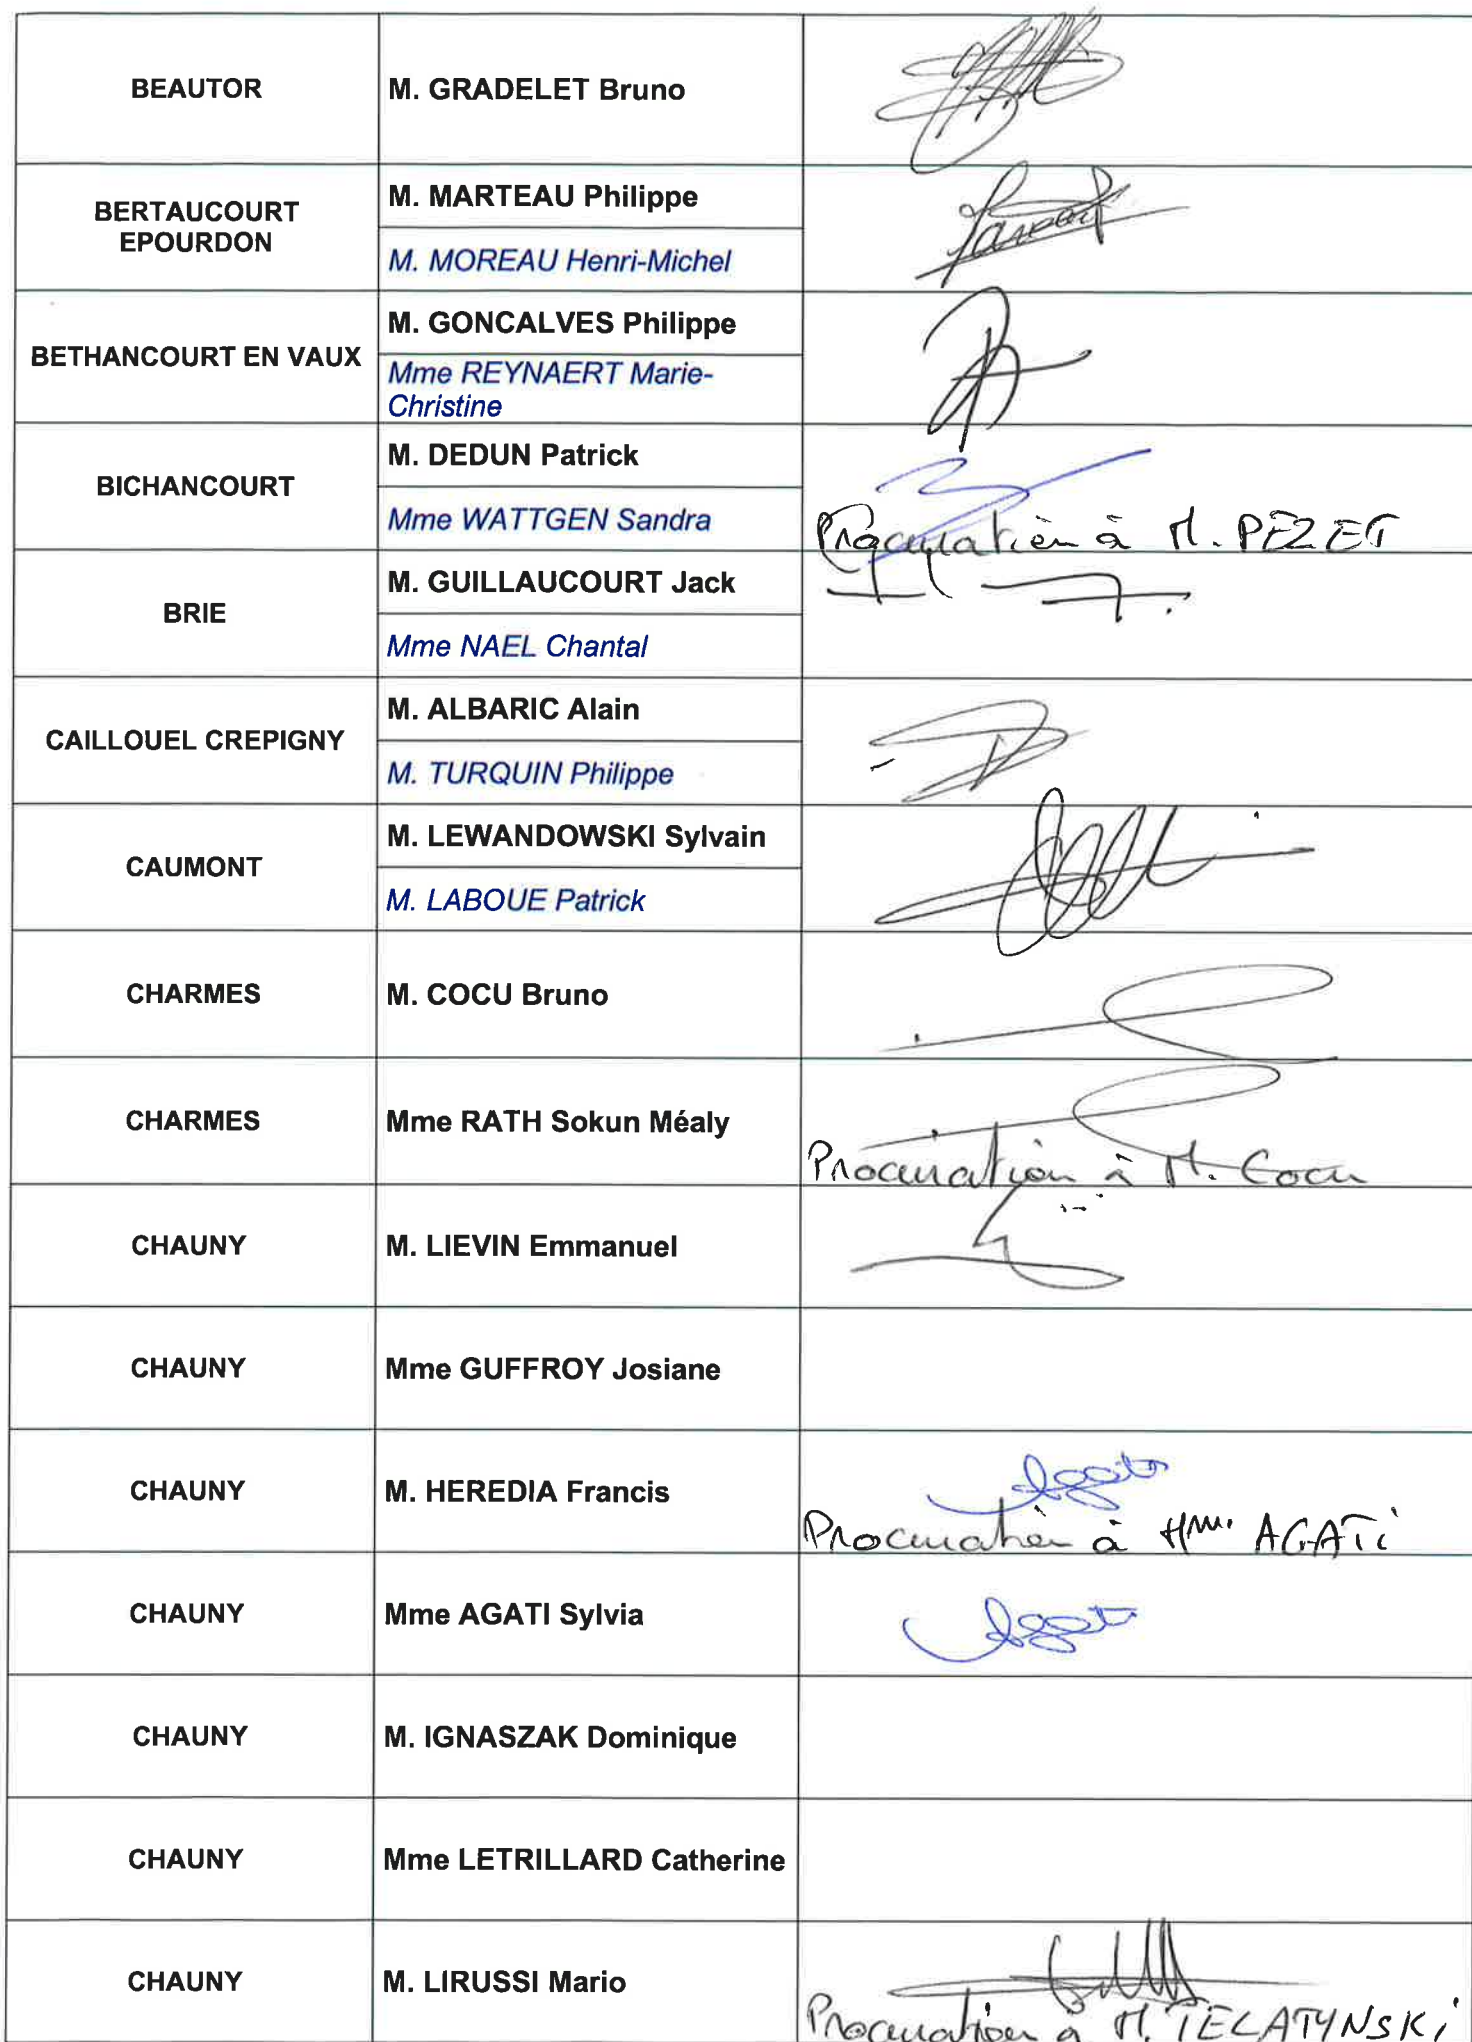 BEAUTOR
M. GRADELET Bruno
BERTAUCOURT
EPOURDON
M. MARTEAU Philippe
M. MOREAU Henri-Michel
BETHANCOURT EN VAUX
M. GONCALVES Philippe
Mme REYNAERT Marie-
Christine
BICHANCOURT
M. DEDUN Patrick
Mme WATTGEN Sandra
Procuration à M. PEZET
BRIE
M. GUILLAUCOURT Jack
Mme NAEL Chantal
CAILLOUEL CREPIGNY
M. ALBARIC Alain
M. TURQUIN Philippe
CAUMONT
M. LEWANDOWSKI Sylvain
M. LABOUE Patrick
CHARMES
M. COCU Bruno
CHARMES
Mme RATH Sokun Méaly
Procuration à M. Cocu
CHAUNY
M. LIEVIN Emmanuel
CHAUNY
Mme GUFFROY Josiane
CHAUNY
M. HEREDIA Francis
Agati
Procuration à Mme AGATi
CHAUNY
Mme AGATI Sylvia
Agati
CHAUNY
M. IGNASZAK Dominique
CHAUNY
Mme LETRILLARD Catherine
CHAUNY
M. LIRUSSI Mario
Procuration à M. TELATYNSKi